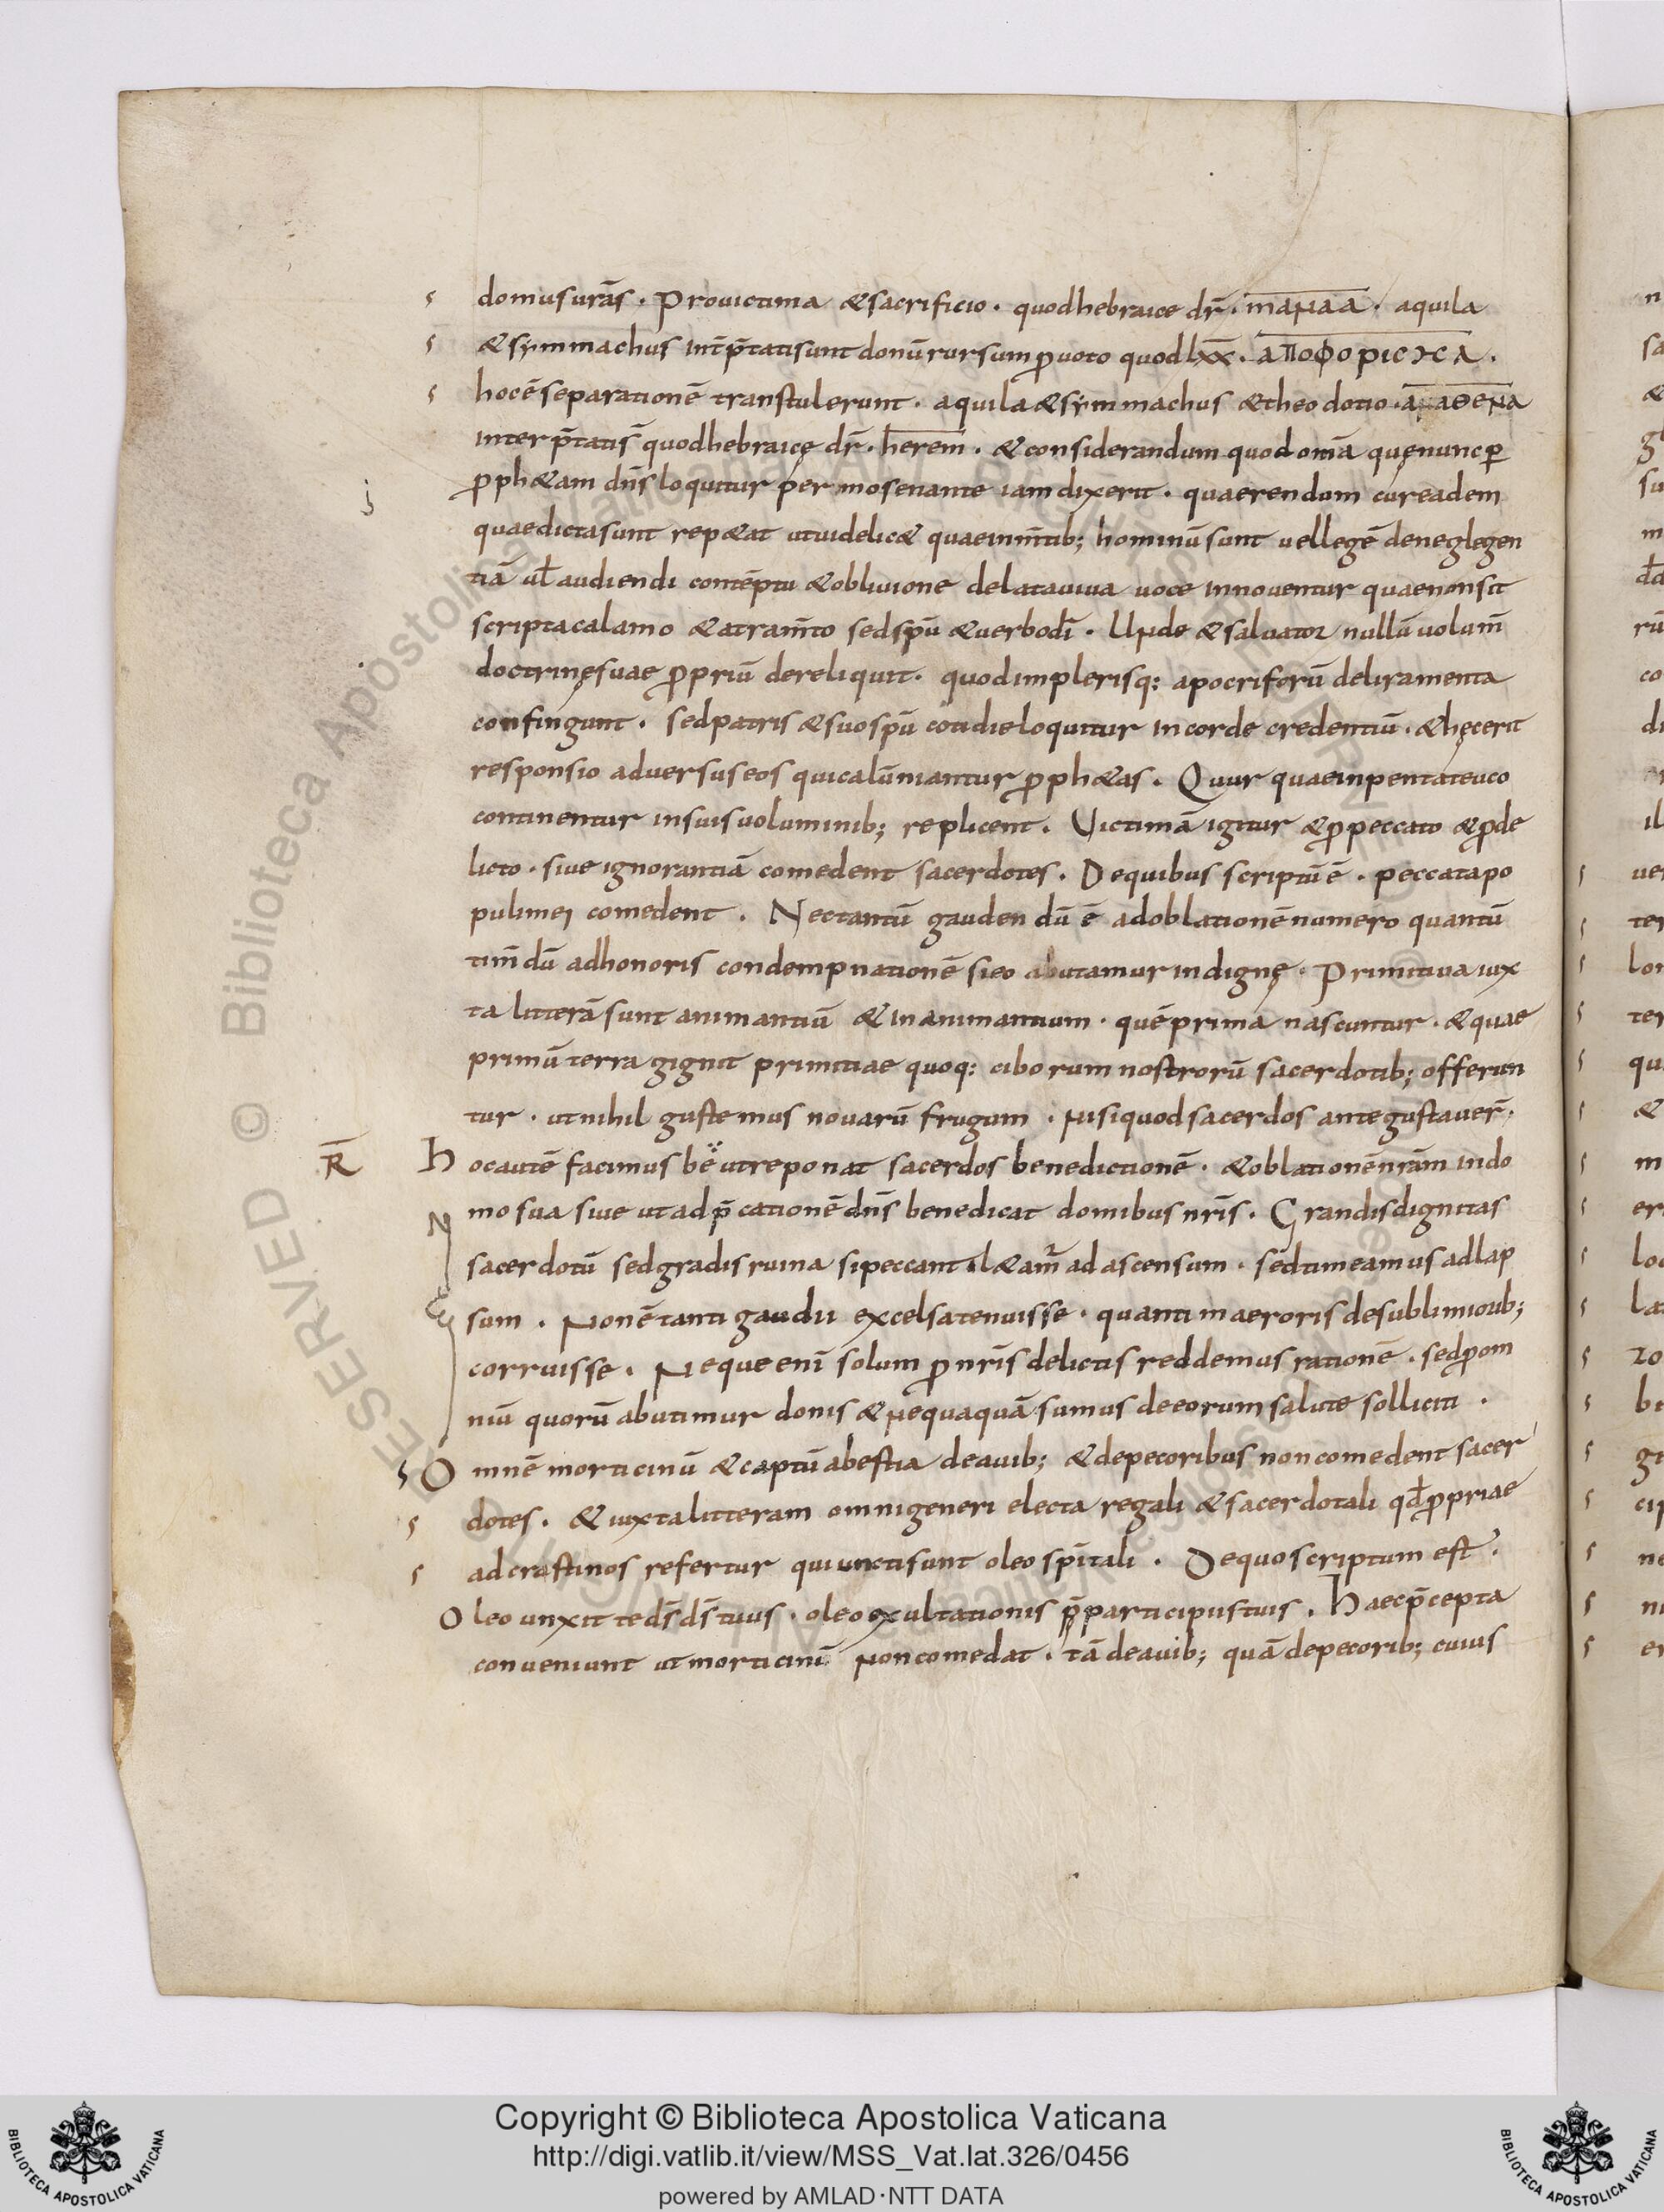 domus urās · Pro uictima & sacrificio · quod hebraice dr̄ · maɴaa · aquila
& symmachus int̄p̄tati sunt donū rursum ꝓ uoto quod lxx̄ · aποφοριcκα ·
hoc ē separationē transtulerunt · aquila & symmachus & theodotio · aɴaθεμa
interp̄tati s̄ quod hebraicę dr̄ · herem · & considerandum quod om̄a quę nunc ꝑ
ꝓph&am dn̄s loquitur per mosen ante iam dixerit · quaerendum cur eadem
quae dicta sunt rep&at ut uidelic& quae in m̄tib; hominū sunt uel legē de neglegen
tiā ul̄ audiendi contēptu & obliuione delata uiua uoce innouentur quae non sit
scripta calamo & atram̄to sed sp̄u & uerbo dī · Unde & saluator nullū uolum̄
doctrinę suae ꝓpriū dereliquit · quod in plerisq: apocriforū deliramenta
confingunt · sed patris & suo sp̄u cotidie loquitur in corde credentiū · & hęc erit
responsio aduersus eos qui calūniantur ꝓph&as · Quur quae in pentateuco
continentur in suis uoluminib; replicent · Uictimā igitur & ꝓ peccato & ꝓ de
licto · siue ignorantiā comedent sacerdotes · De quibus scriptū ē · peccata po
puli mei comedent · Nec tantū gaudendū ē ad oblationē numero quantū
tim̄dū ad honoris condempnationē si eo abutamur indignę · Primitiua iux
ta litterā sunt animantiū & inanimantium · quę prima nascuntur · & quae
primū terra gignit primitiae quoq: ciborum nostrorū sacerdotib; offerun
tur · ut nihil gustemus nouarū frugum · nisi quod sacerdos ante gustauer̄ ·
R̄ Hoc autē facimus bē ut reponat sacerdos benedictionē · & oblationē nrām in do
mo sua siue ut ad p̄cationē dn̄s benedicat domibus nrīs · Grandis dignitas
sacerdotū sed gradis ruina si peccant l&am̄ ad ascensum · sed timeamus ad lap
sum · Non ē tanti gaudii excelsa tenuisse · quanti maeroris de sublimiorib;
corruisse · Neque enī solum ꝓ nrīs delictis reddemus rationē · sed ꝓ om
niū quorū abutimur donis & nequaquā sumus de eorum salute solliciti ·
Omnē morticinū & captū a bestia de auib; & de pecoribus non comedent sacer
dotes · & iuxta litteram omni generi electa regali & sacerdotali qd̄ ꝓpriae
ad crastinos refertur qui uncti sunt oleo spītali · De quo scriptum est ·
Oleo unxit te ds̄ ds̄ tuus · oleo exultationis p̄ participus tuis · Haec p̄cepta
conueniunt ut morticinū non comedat · tā de auib; quā de pecorib; cuius
Copyright © Biblioteca Apostolica Vaticana
http://digi.vatlib.it/view/MSS_Vat.lat.326/0456
powered by AMLAD·NTT DATA